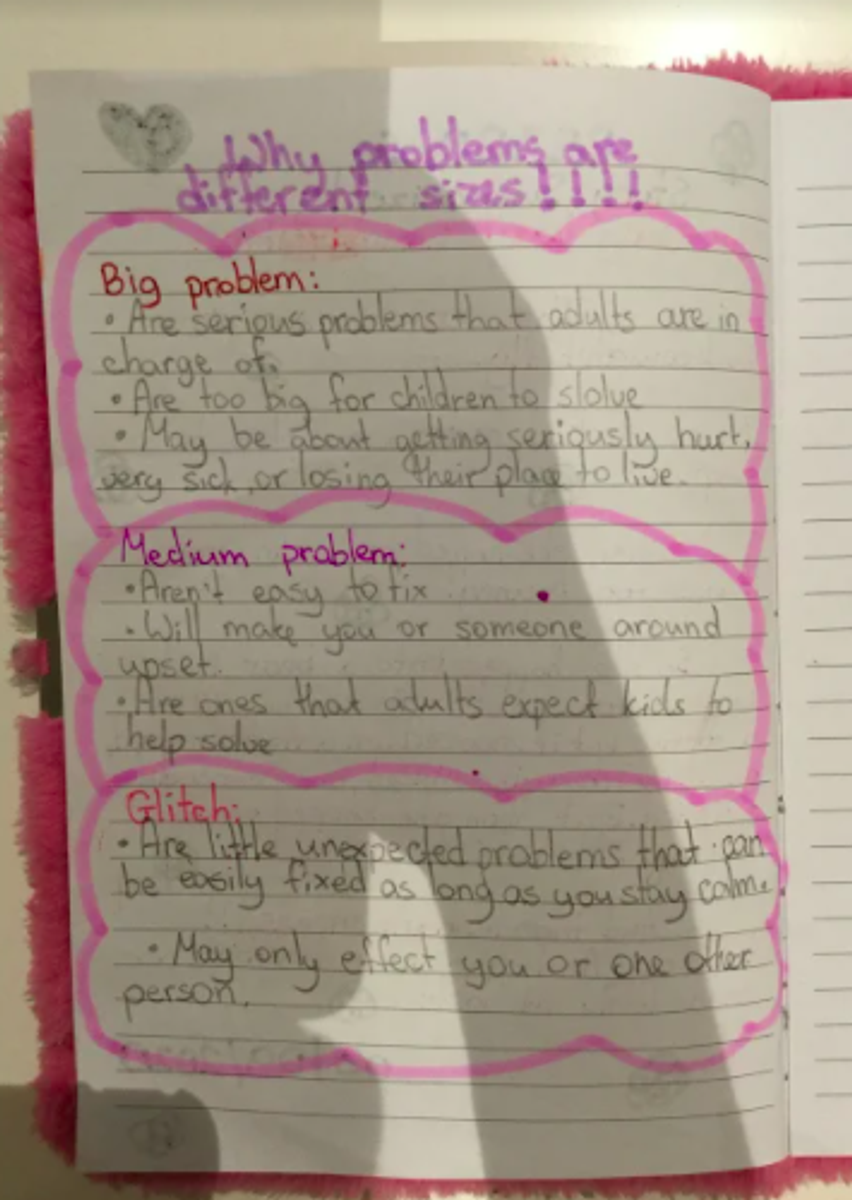 Why problems are
different sizes!!!!
Big problem:
• Are serious problems that adults are in
charge of.
• Are too big for children to slolve
• May be about getting seriously hurt,
very sick, or losing their place to live.
Medium problem:
• Aren't easy to fix
• Will make you or someone around
upset.
• Are ones that adults expect kids to
help solve
Glitch:
• Are little unexpected problems that can
be easily fixed as long as you stay calm.
• May only effect you or one other
person.